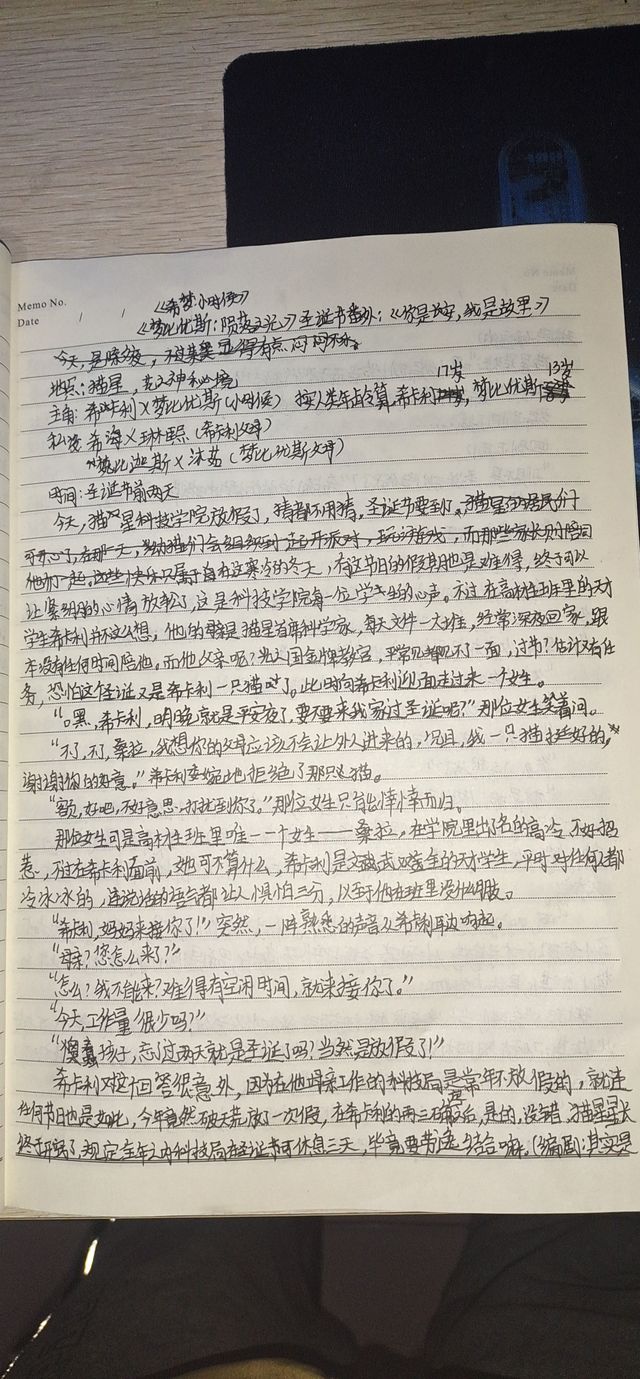 Memo No.
Date / /
《希梦小时候》
《梦比优斯：陨落之光》圣诞节番外：《你是长安，我是故里》
今天，是除夕夜，不过某某显得有点闷闷不乐。
地点：猫星，玄之神秘境
17岁 13岁
主角：希卡利×梦比优斯（小时候） 按人类年龄算，希卡利 梦比优斯
私设：希海×琳熙（希卡利父母）
梦比迦斯×沐茹（梦比优斯父母）
时间：圣诞节前两天
今天，猫星科技学院放假了，猜都不用猜，圣诞节要到了，猫星的居民们
可开心了，在那一天，猫们会组织到一起开派对，玩游戏，而那些家长则陪同
他们一起。这些快乐只属于自在这寒冷的冬天，有这节日的假期也是难得，终于可以
让紧绷的心情放松了，这是科技学院每一位学生的心声。不过在高材生班里的天才
学生希卡利并不这么想，他的母亲是猫星首席科学家，每天文件一大堆，经常深夜回家，跟
本没有任何时间陪他。而他父亲呢？光之国金牌教官，平常见都见不了一面，过节？估计又有任
务，恐怕这个圣诞又是希卡利一只猫过了。此时向希卡利迎面走过来一个女生。
“嘿，希卡利，明晚就是平安夜了，要不要来我家过圣诞呢？”那位女生笑着问。
“不了，不了，桑拉，我想你的父母应该不会让外人进来的，况且，我一只猫挺好的，
谢谢你的好意。”希卡利委婉地拒绝了那只猫。
“额，好吧，不好意思，打扰到你了。”那位女生只能悻悻而归。
那位女生可是高材生班里唯一一个女生——桑拉，在学院里出了名的高冷，不好招
惹，不过在希卡利面前，她可不算什么，希卡利是文武双全的天才学生，平时对任何人都
冷冰冰的，连说话的语气都让人惧怕三分，以至于他在班里没什么朋友。
“希卡利，妈妈来接你了！”突然，一阵熟悉的声音从希卡利耳边响起。
“母亲？您怎么来了？”
“怎么？我不能来？难得有空闲时间，就来接你了。”
“今天，工作量很少吗？”
“傻孩子，忘了过两天就是圣诞了吗？当然是放假了！”
希卡利对这个回答很意外，因为在他母亲工作的科技局是常年不放假的，就连
任何节日也是如此，今年竟然破天荒放了一次假，在希卡利的再三确认后，是的，没错，猫星星长
终于开窍了，规定全年之内科技局在圣诞节可休息三天，毕竟要劳逸结合嘛。（编剧：其实是